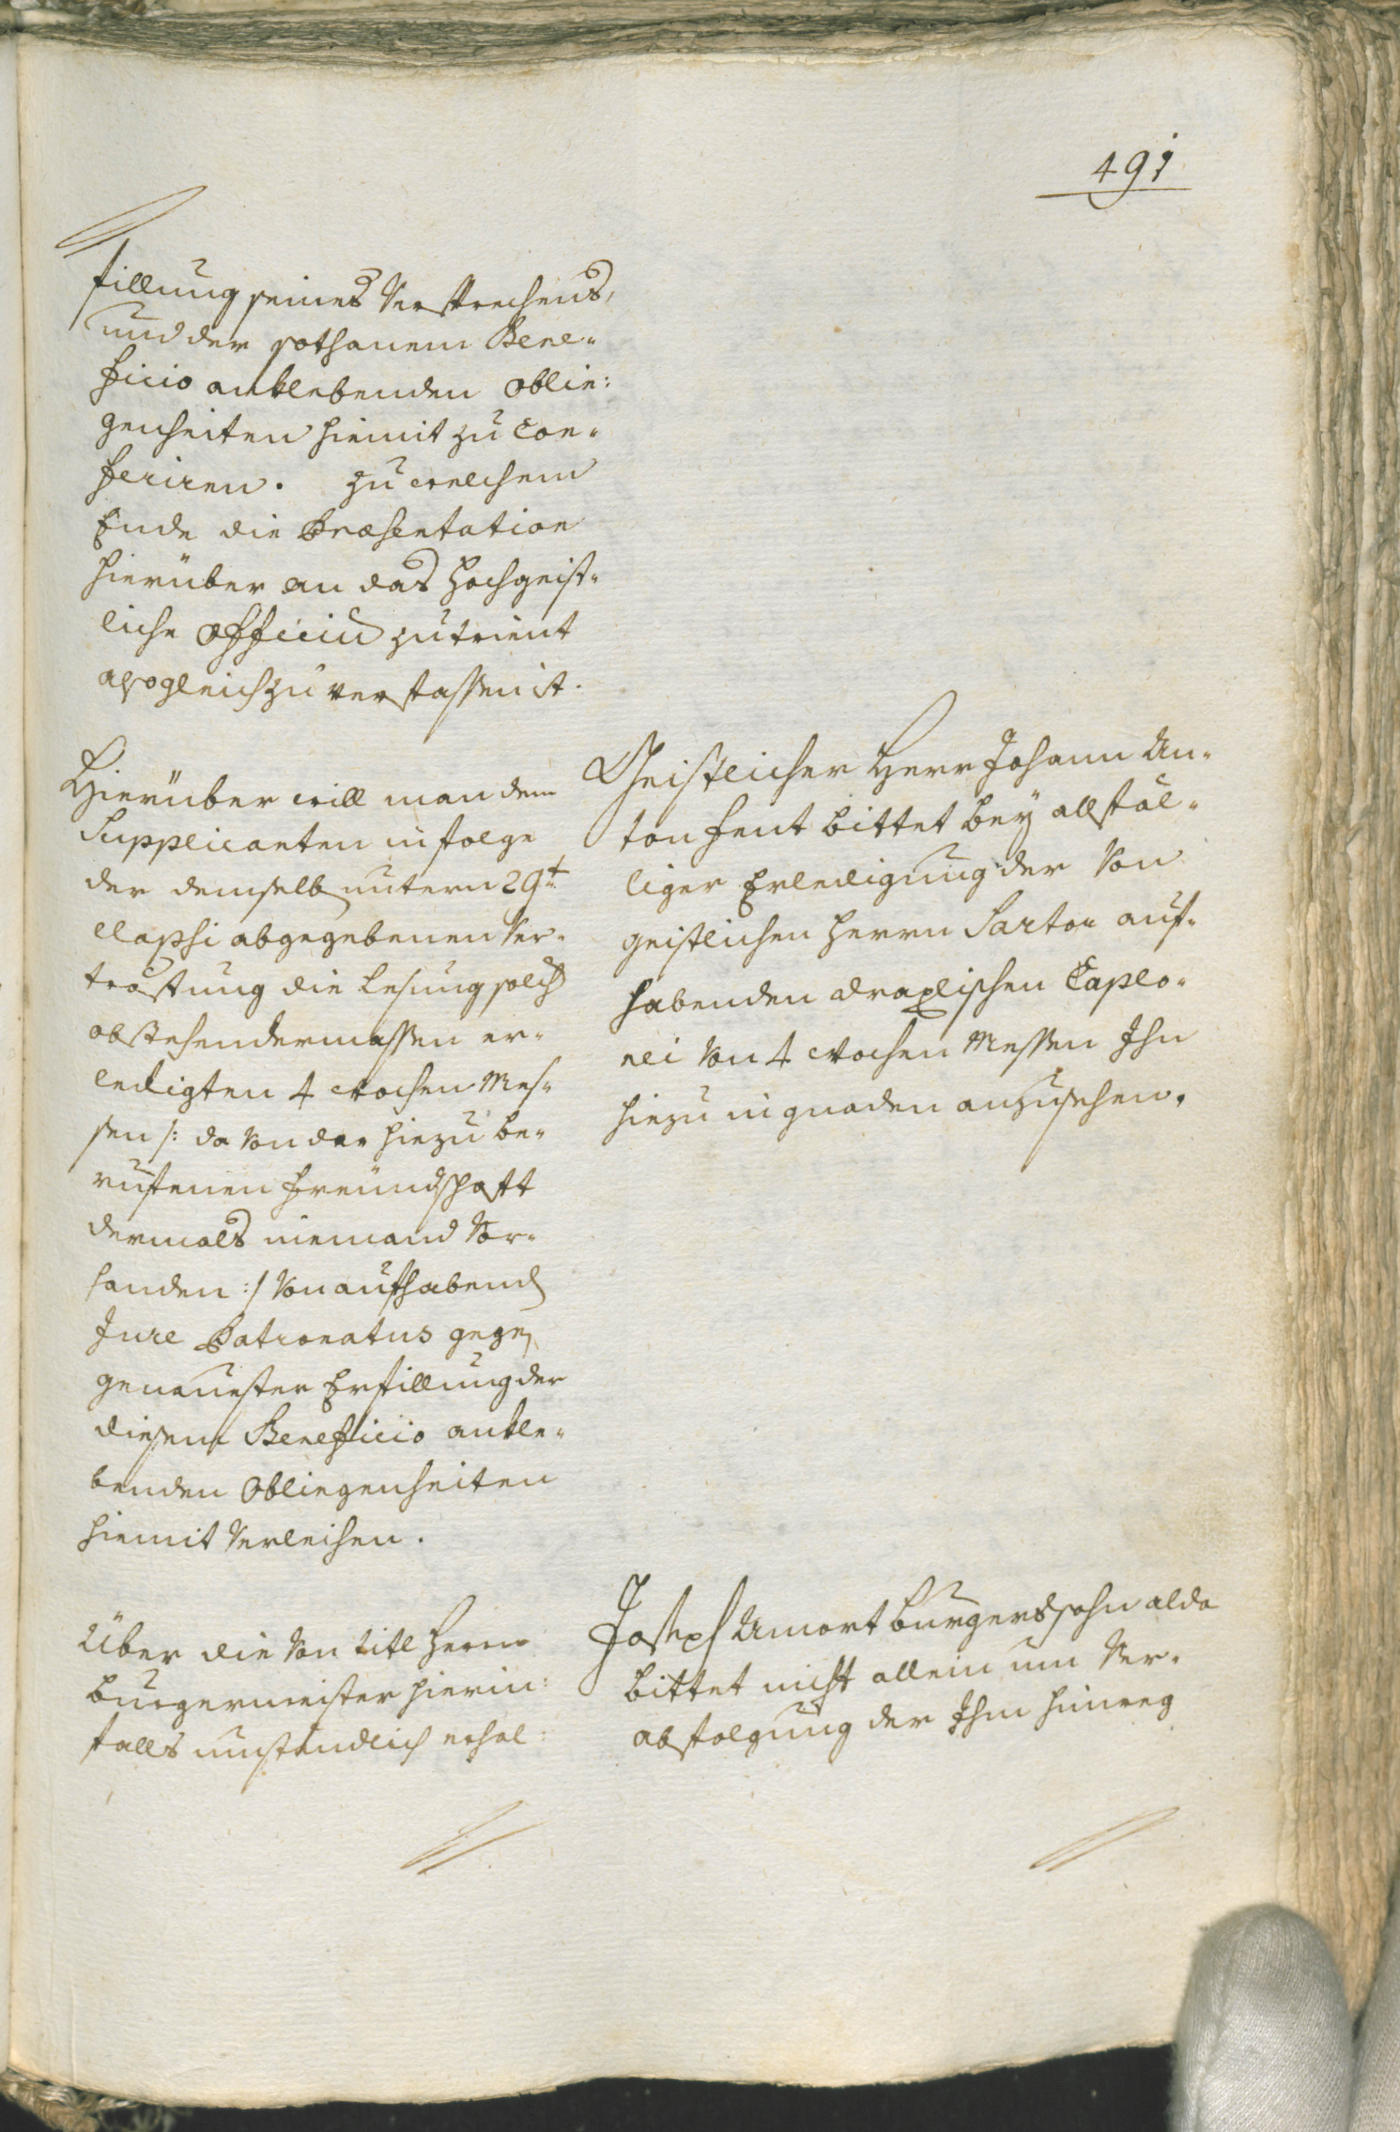 491
fillung seines Versprechens,
und der sothanem Bene-
ficio anklebenden oblie:
genheiten hiemit zu Con-
feriren. Zu welchem
Ende die Præsentation
hierüber an das Hochgeist-
liche Officiu zu Trient
alsogleich zu verfassen ist.
Hierüber will man dem
Supplicanten in folge
der demselb untern 29t
elapsi abgegebenen Ver-
tröstung die Lesung solch
obstehendermassen er-
ledigten 4 Wochen Mes-
sen /: da von der hiezu be-
ruffenen Freundschafft
dermals niemand Vor-
handen :/ Von aufhabend
Jure Patronatus gegen
genauester Erfillung der
diesem Beneficio ankle-
benden Obliegenheiten
hiemit Verleihen.
Über die Von titl Herrn
Burgermeister hierin:
falls umständlich erhol:
Geistlicher Herr Johann An-
ton Fent bittet bey allfäl-
liger Erledigung der Von
geistlichen Herrn Sartor auf-
habenden Draxlischen Caplo-
nei Von 4 Wochen Messen Ihn
hiezu in gnaden anzusehen.
Joseph Amort Burgerssohn alda
bittet nicht allein um Ver-
abfolgung der Ihm hinweg